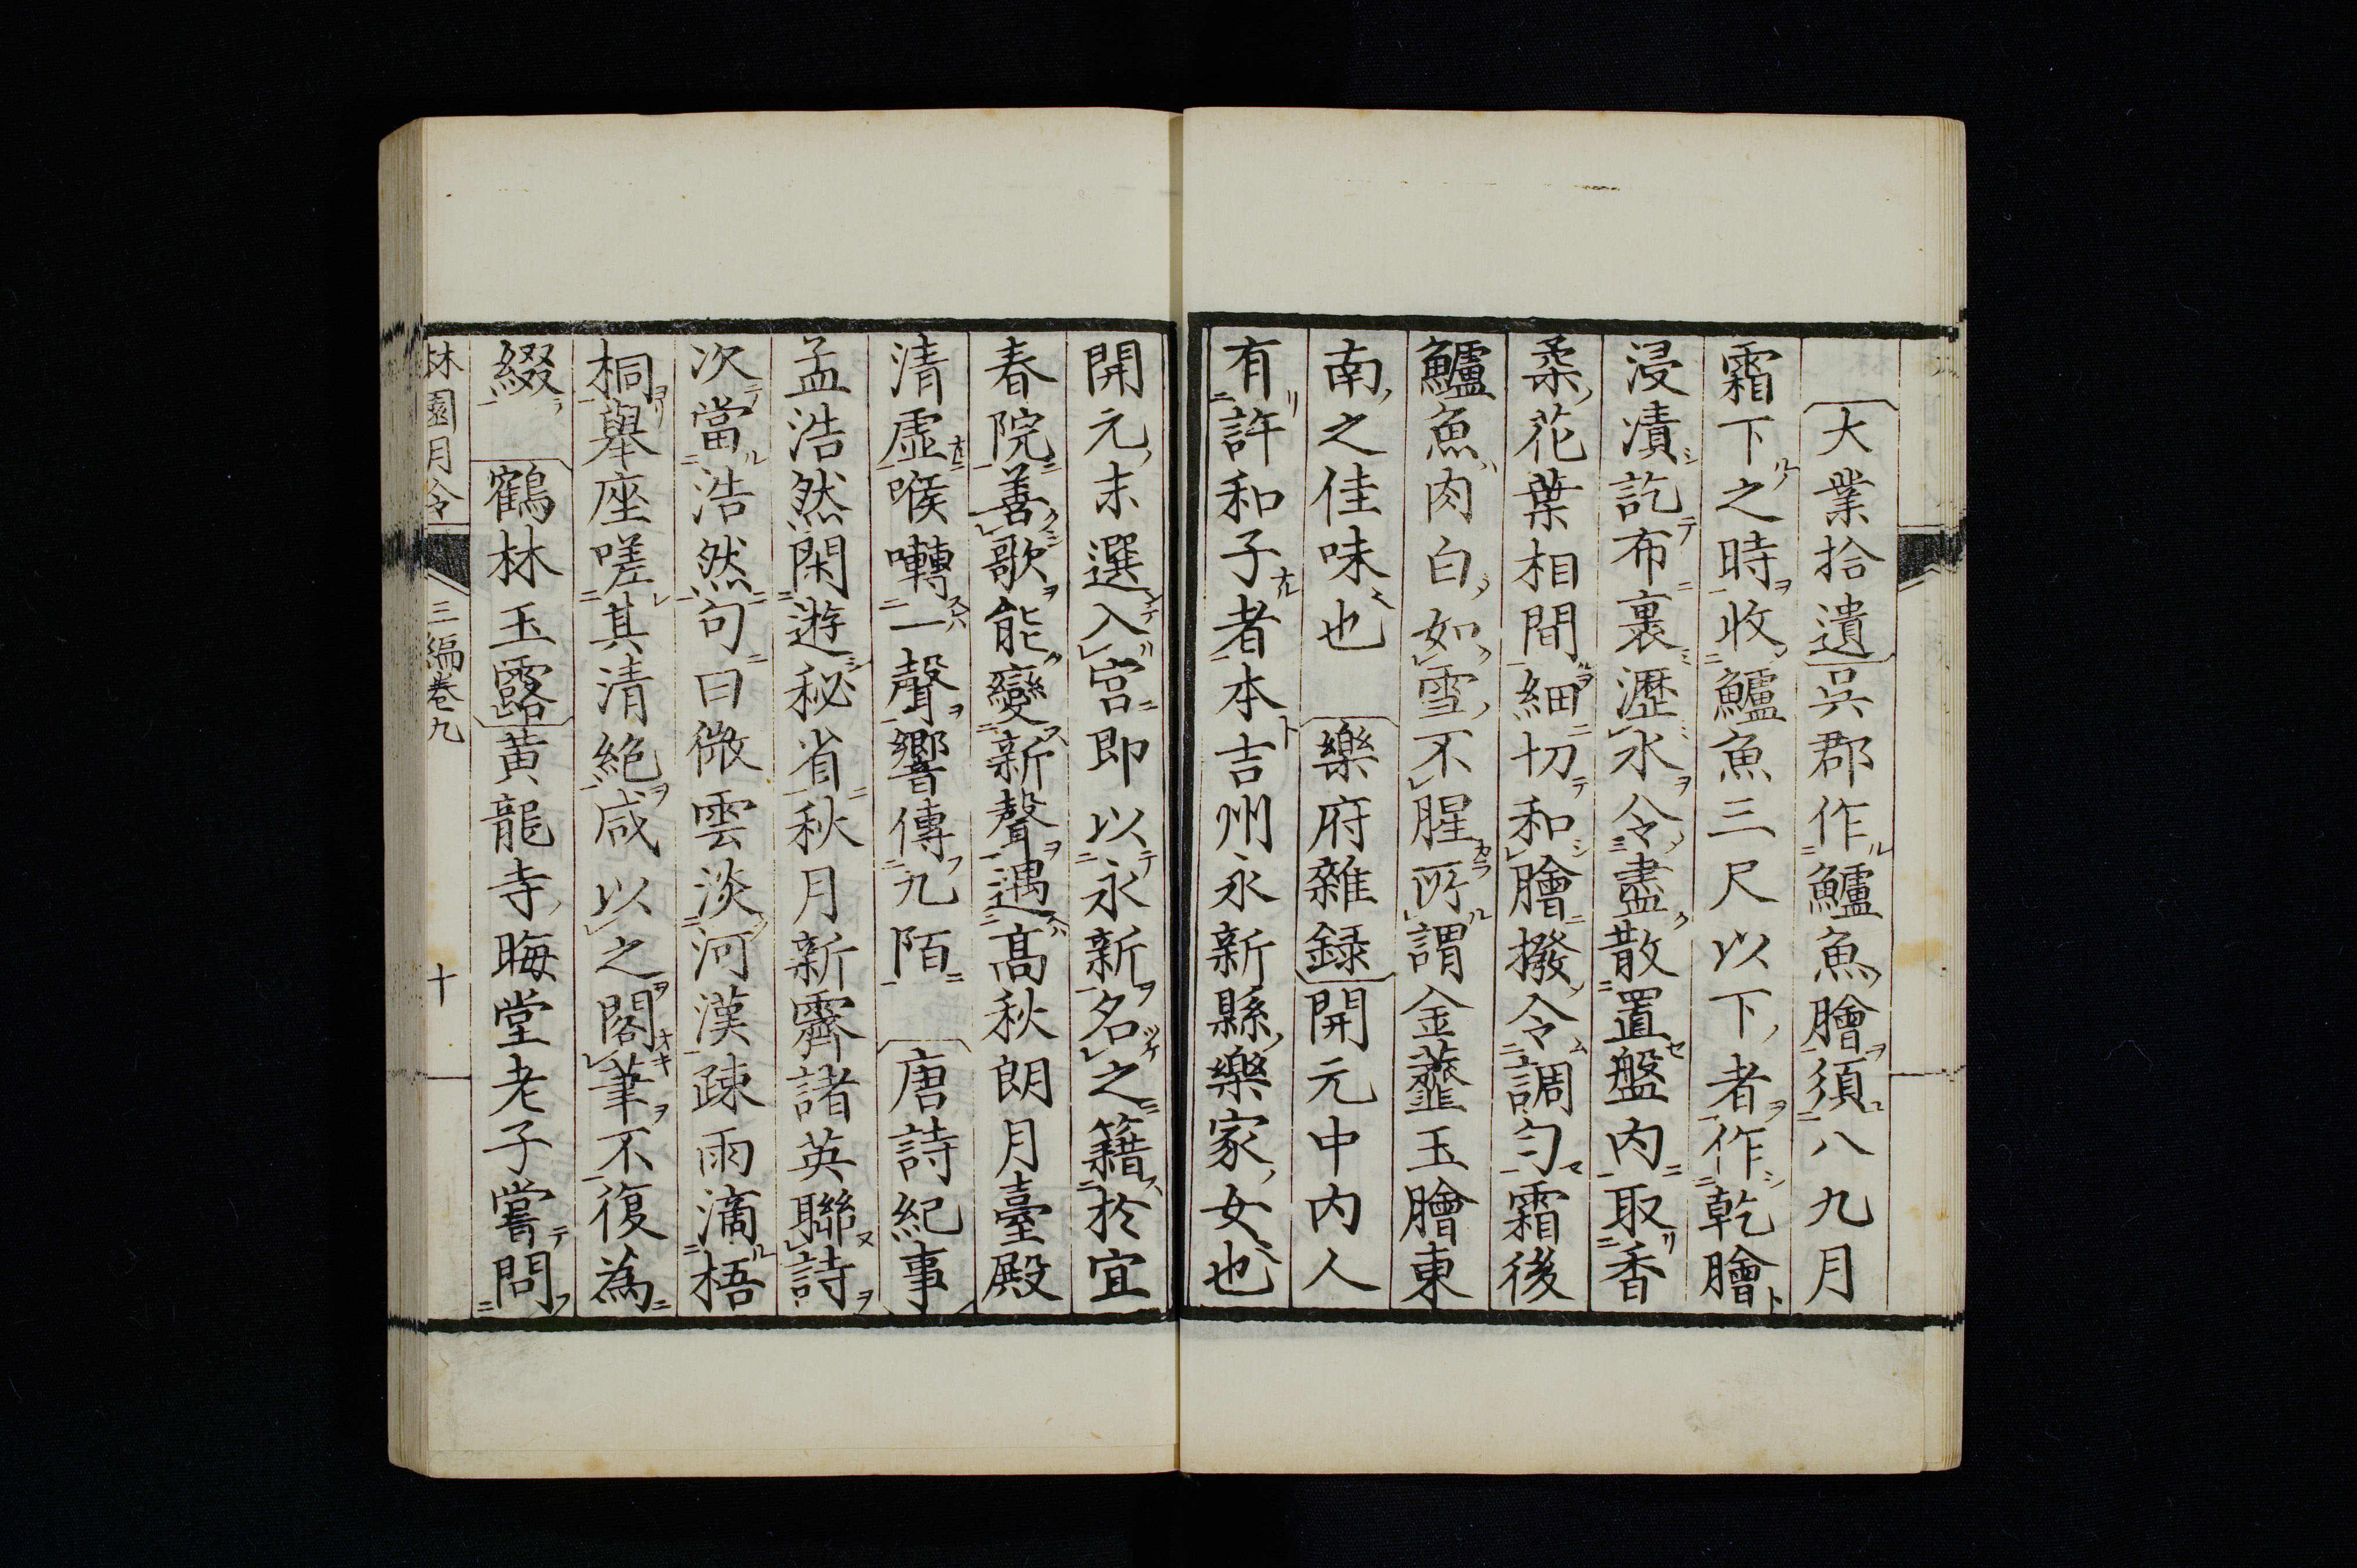 大業拾遺吳郡作鱸魚膾須八九月
霜下之時收鱸魚三尺以下者作乾膾
浸漬訖布裹瀝水令盡散置盤内取香
柔花葉相間細切和膾撥令調勻霜後
鱸魚肉白如雪不腥所謂金虀玉膾東
南之佳味也 樂府雜録開元中内人
有許和子者本吉州永新縣樂家女也
開元末選入宮即以永新名之籍於宜
春院善歌能變新聲遇髙秋朗月臺殿
清虛喉囀一聲響傳九陌 唐詩紀事
孟浩然閑遊秘省秋月新霽諸英聯詩
次當浩然句曰微雲淡河漢疎雨滴梧
桐舉座嗟其清絶咸以之閣筆不復為
綴 鶴林玉露黄龍寺晦堂老子嘗問
林園月令 三編卷九 十